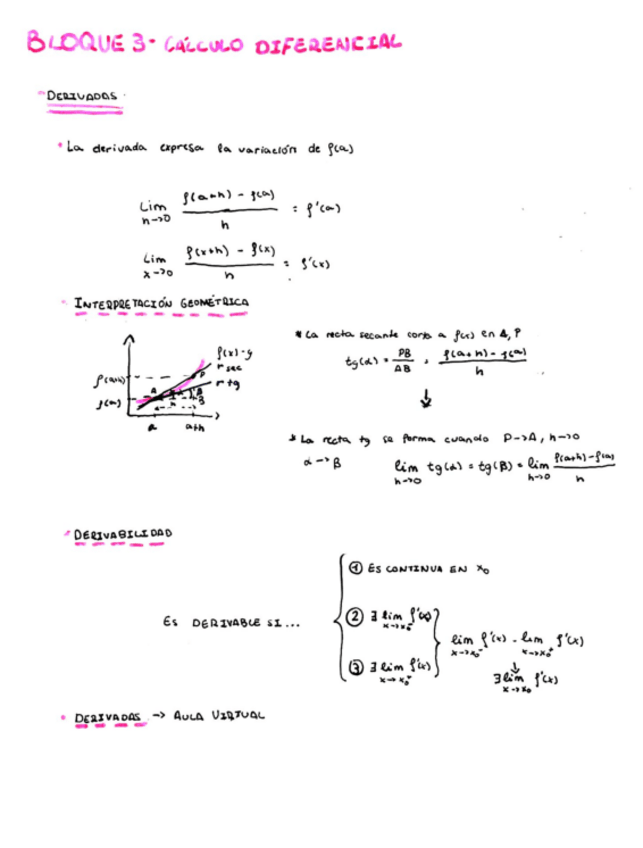 BLOQUE 3 - CÁLCULO DIFERENCIAL
DERIVADAS
La derivada expresa la variación de f(a)
Lim h->0 (f(a+h) - f(a)) / h = f'(a)
Lim x->0 (f(x+h) - f(x)) / h = f'(x)
INTERPRETACIÓN GEOMÉTRICA
* La recta secante corta a f(x) en A, P
f(x)=y
r sec
r tg
f(a+h)
f(a)
A
P
B
h
a
a+h
tg(α) = PB / AB = (f(a+h) - f(a)) / h
↓
* La recta tg se forma cuando P->A, h->0
α -> β
lim h->0 tg(α) = tg(β) = lim h->0 (f(a+h) - f(a)) / h
DERIVABILIDAD
ES DERIVABLE SI...
① ES CONTINUA EN x₀
② ∃ lim x->x₀⁻ f'(x)
③ ∃ lim x->x₀⁺ f'(x)
lim x->x₀⁻ f'(x) = lim x->x₀⁺ f'(x)
↓
∃ lim x->x₀ f'(x)
DERIVADAS -> AULA VIRTUAL